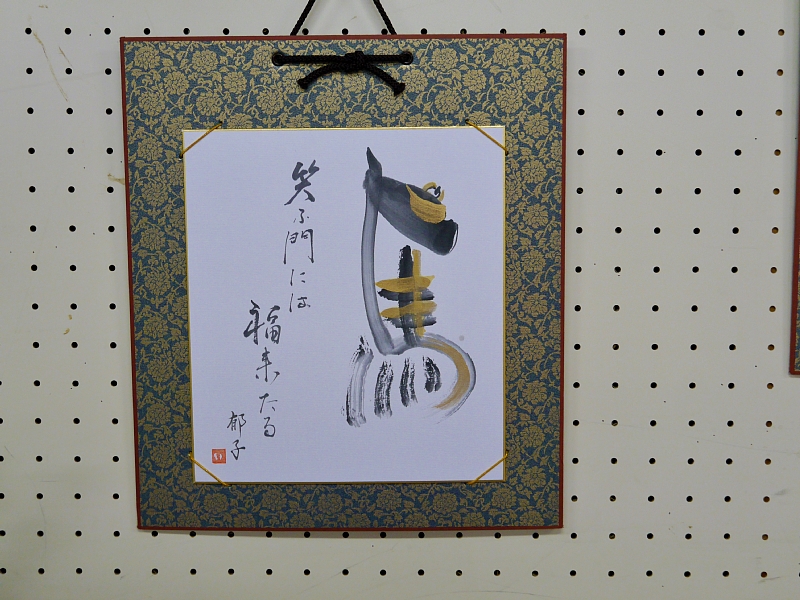 馬
笑ふ門には
福来たる
郁子